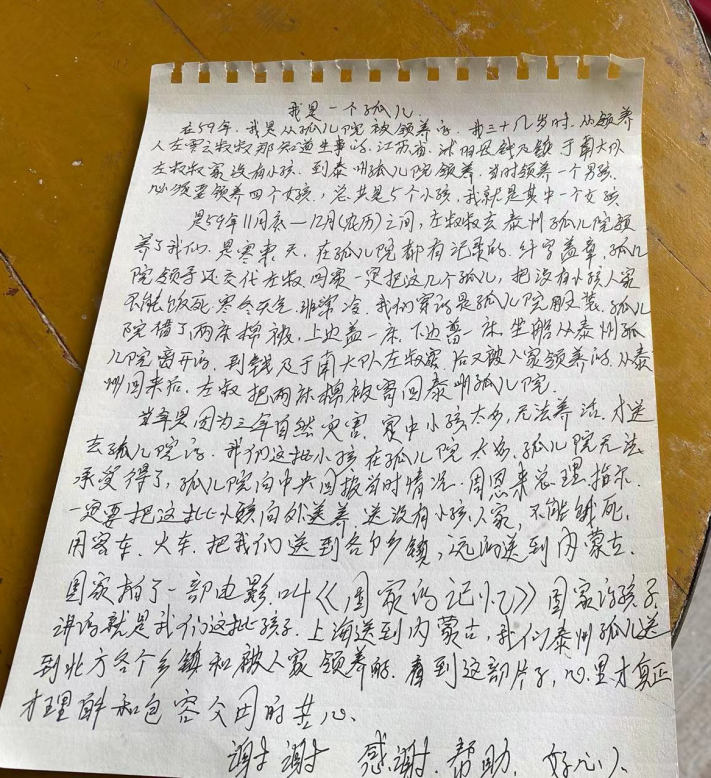 我是一个孤儿.
在59年.我是从孤儿院被领养的.我三十几岁时.从领养
人左叔叔那知道生事的.江苏省.沭阳县钱及镇于南大队
左叔叔家没有小孩.到泰州孤儿院领养.当时领养一个男孩.
必须要领养四个女孩.,总共是5个小孩.我就是其中一个女孩
是59年11月底—12月(农历)之间,左叔叔去泰州孤儿院领
养了我们.是寒来天.在孤儿院都有记录的.外字盖章.孤儿
院领导还交代左叔回家一定把这几个孤儿,把没有小孩人家
不能饿死.寒冬天气.非常冷.我们穿的是孤儿院服装.孤儿
院借了两床棉被.上边盖一床.下边一床.坐船从泰州孤
儿院离开的.到钱及于南大队左叔家.后又被人家领养的.从泰
州回来后.左叔把两床棉被寄回泰州孤儿院.
当年是因为三年自然灾害.家中小孩太多,无法养活.才送
去孤儿院的.我们这批小孩在孤儿院太多.孤儿院无法
承受得了,孤儿院向中央回报当时情况.周恩来总理指示.
一定要把这批小孩向外送养.送没有小孩人家,不能饿死.
用客车.火车.把我们送到各个乡镇,远的送到内蒙古.
国家拍了一部电影叫《国家的记忆》国家的孩子.
讲的就是我们这批孩子.上海送到内蒙古,我们泰州孤儿送
到北方各个乡镇和被人家领养的.看到这部片子,心里才真正
才理解和包容父母的苦心.
谢谢 感谢.帮助 好心人